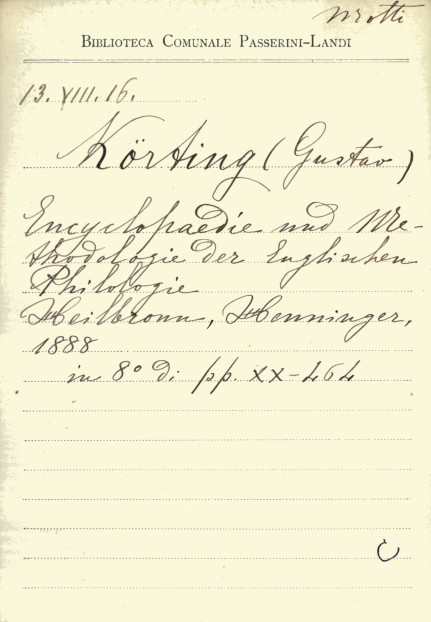 Motti
BIBLIOTECA COMUNALE PASSERINI-LANDI
13. XIII. 16.
Körting (Gustav)
Encyclopaedie und Me-
thodologie der Englischen
Philologie
Heilbronn, Henninger,
1888
in 8° di pp. XX-464
C